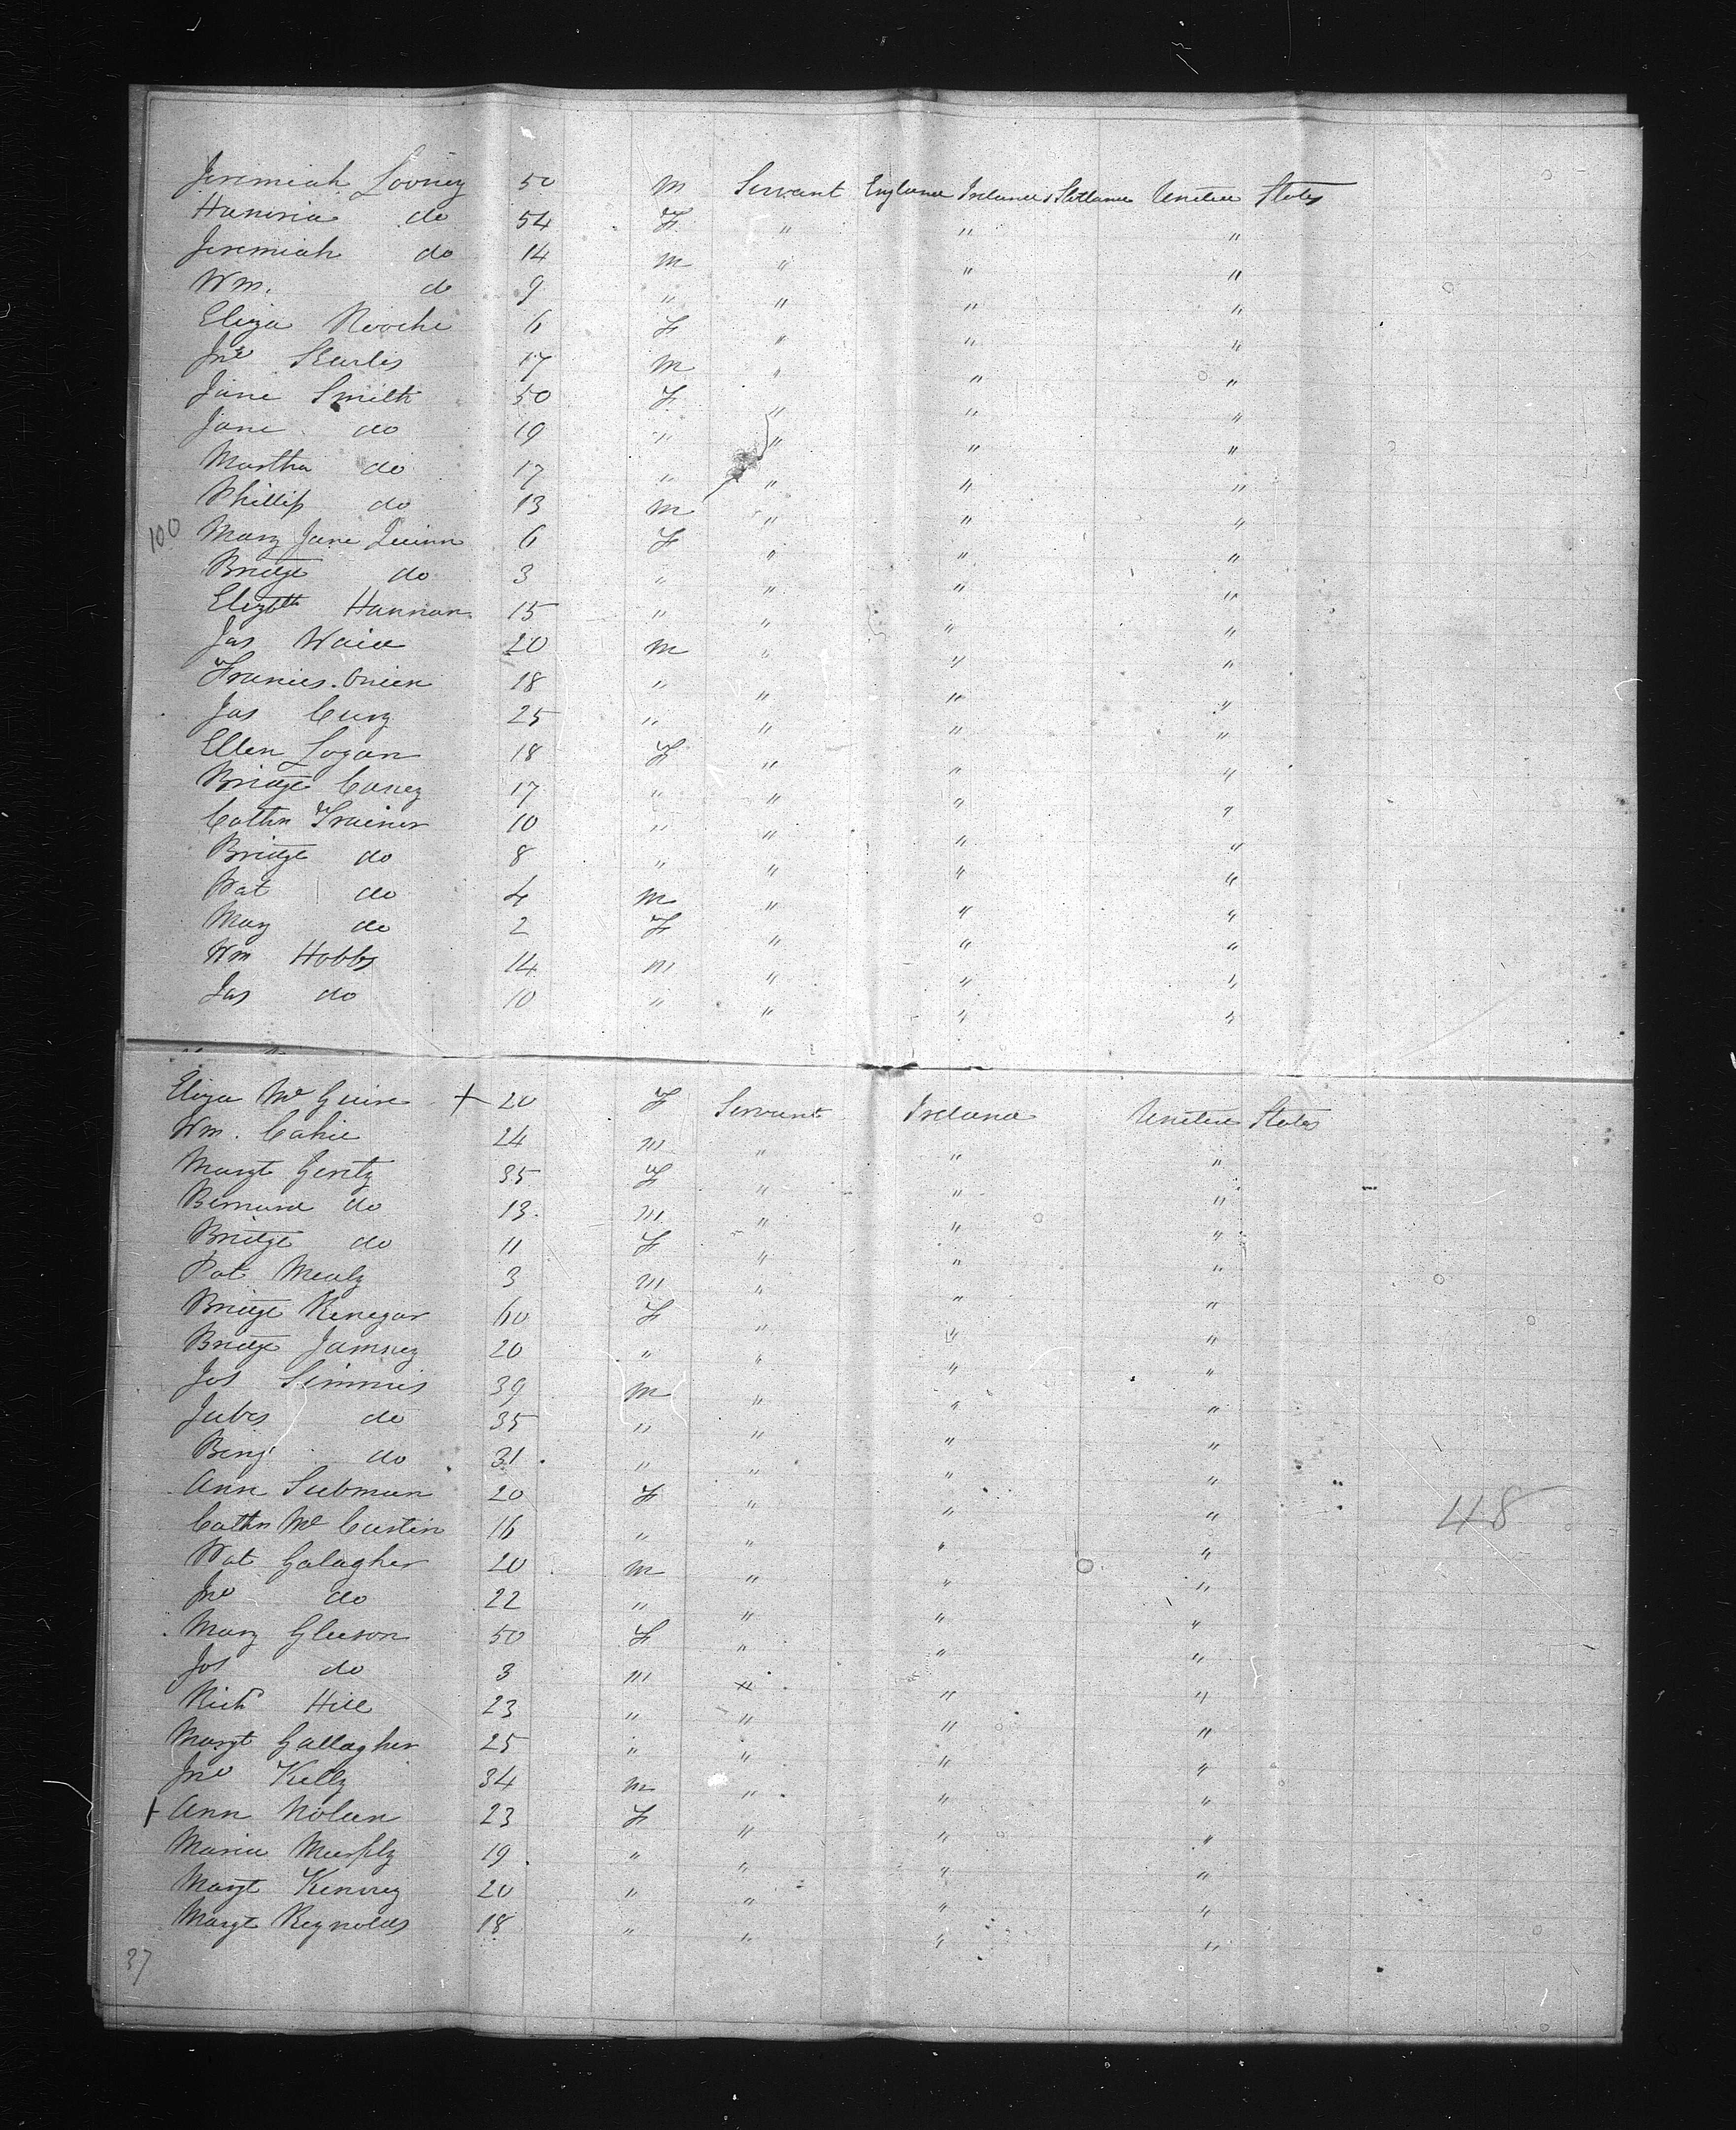 Jeremiah Looney 50 M Servant England Ireland & Scotland United States
Hanoria do 54 F " " "
Jeremiah do 14 M " " "
Wm. do 9 " " " "
Eliza Rooche 6 F " " "
Jno 17 M " " "
Jane Smith 50 F " " "
Jane do 19 " " " "
Martha do 17 " " " "
Phillip do 13 M " " "
100 Mary Jane Quinn 6 F " " "
Bridgt do 3 " " " "
Elizbth Hannan 15 " " " "
Jas 20 M " " "
Francis 18 " " " "
Jas 25 " " " "
Ellen Logan 18 F " " "
Bridgt Casey 17 " " " "
Cathn Trainor 10 " " " "
Bridgt do 8 " " " "
Pat do 4 M " " "
Mary do 2 F " " "
Wm Hobbs 14 M " " "
Jas do 10 " " " "
Eliza Mc Guire + 20 F Servant Ireland United States
Wm. Cahie 24 M " " "
Margt Gerity 35 F " " "
Bernard do 13 M " " "
Bridgt do 11 F " " "
Pat Mealy 3 M " " "
Bridgt Renegar 60 F " " "
Bridgt 20 " " " "
Jos Simmis 39 M " " "
Jubes do 35 " " " "
Benj do 31 " " " "
Ann 20 F " " "
Cathn Mc 16 " " " " 48
Pat Galagher 20 M " " "
Jno do 22 " " " "
Mary Gleeson 50 F " " "
Jos do 3 M " " "
Richd Hill 23 " " " "
Margt Gallagher 25 " " " "
Jno Kelly 34 M " " "
+ Ann Nolan 23 F " " "
Maria Murphy 19 " " " "
Margt Kenney 20 " " " "
Margt Reynolds 18 " " " "
37